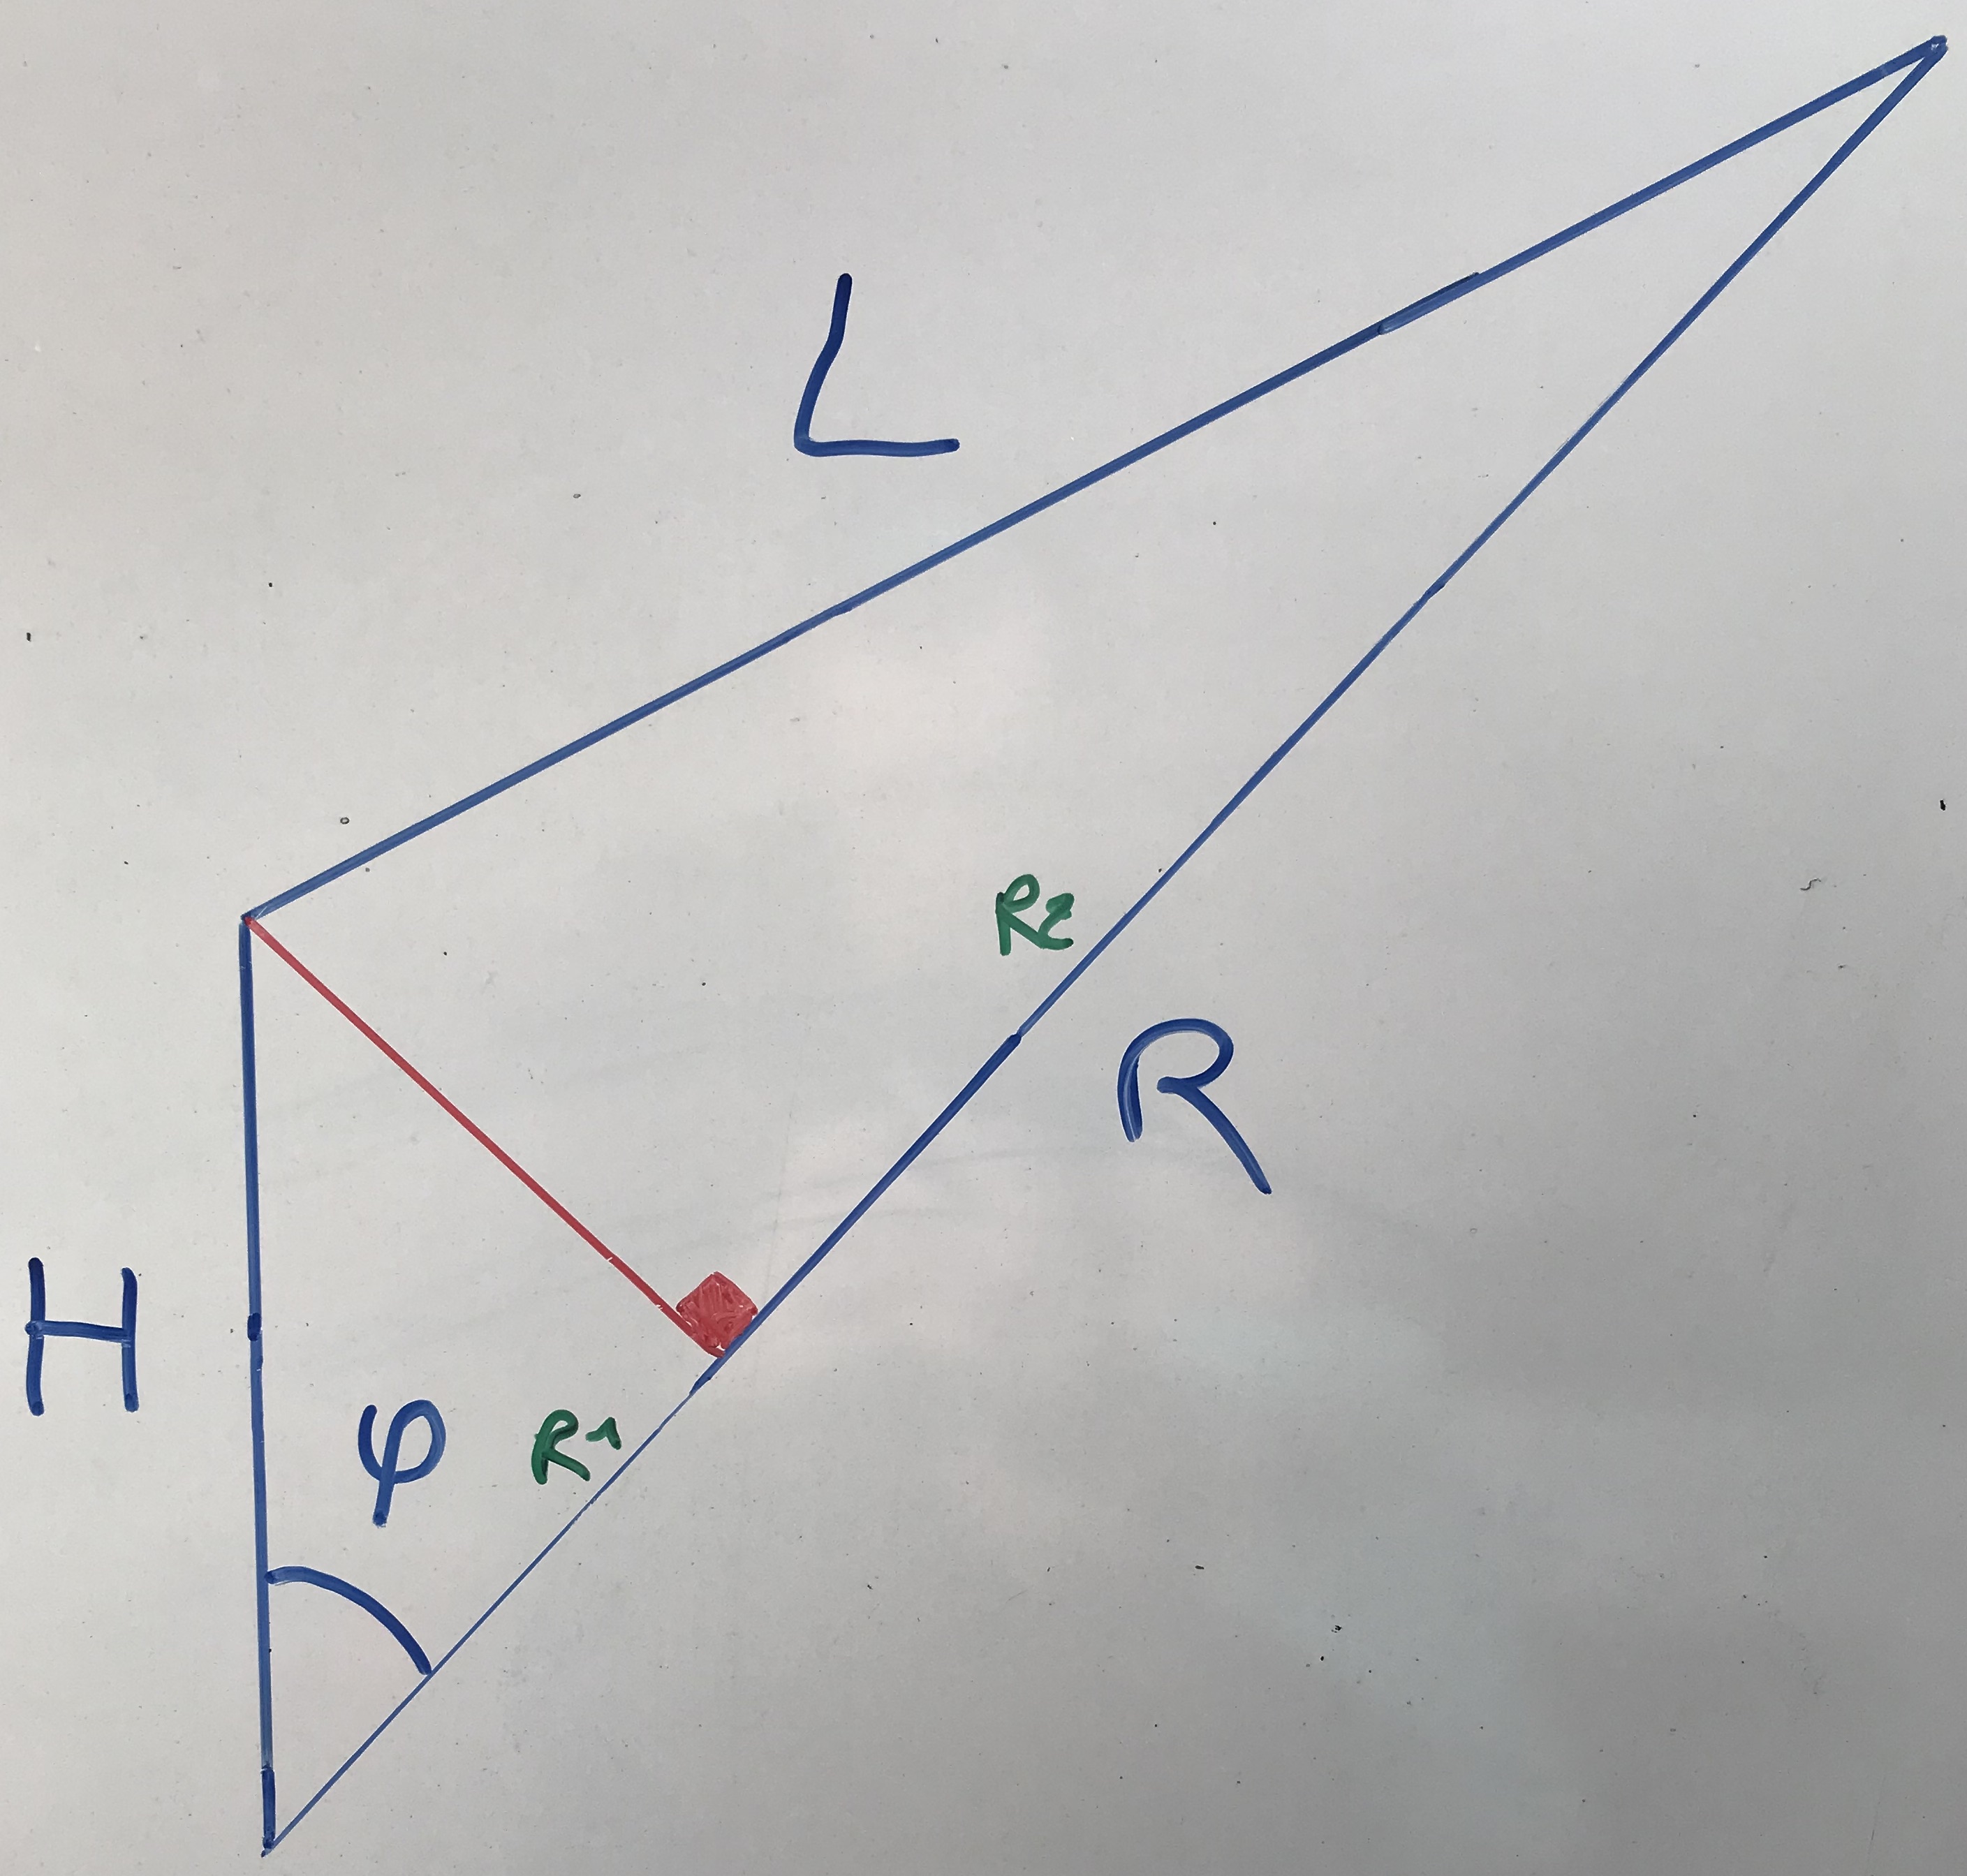 L
R2
R
H
φ
R1